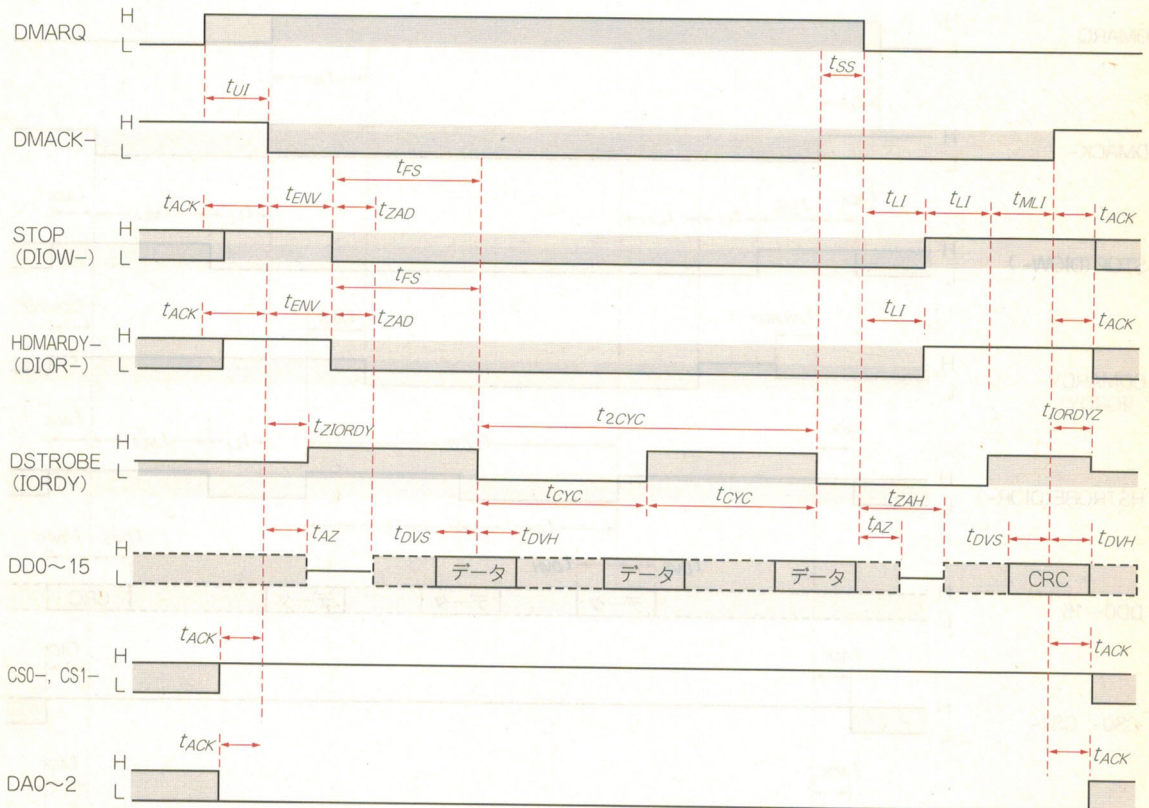 DMARQ H L
tSS
tUI
DMACK- H L
tFS
tACK tENV tZAD tLI tLI tMLI tACK
STOP (DIOW-) H L
tFS
tACK tENV tZAD tLI tACK
HDMARDY- (DIOR-) H L
tZIORDY t2CYC tIORDYZ
DSTROBE (IORDY) H L
tCYC tCYC tZAH
tAZ tDVS tDVH tAZ tDVS tDVH
DD0~15 H L データ データ データ CRC
tACK tACK
CS0-, CS1- H L
tACK tACK
DA0~2 H L